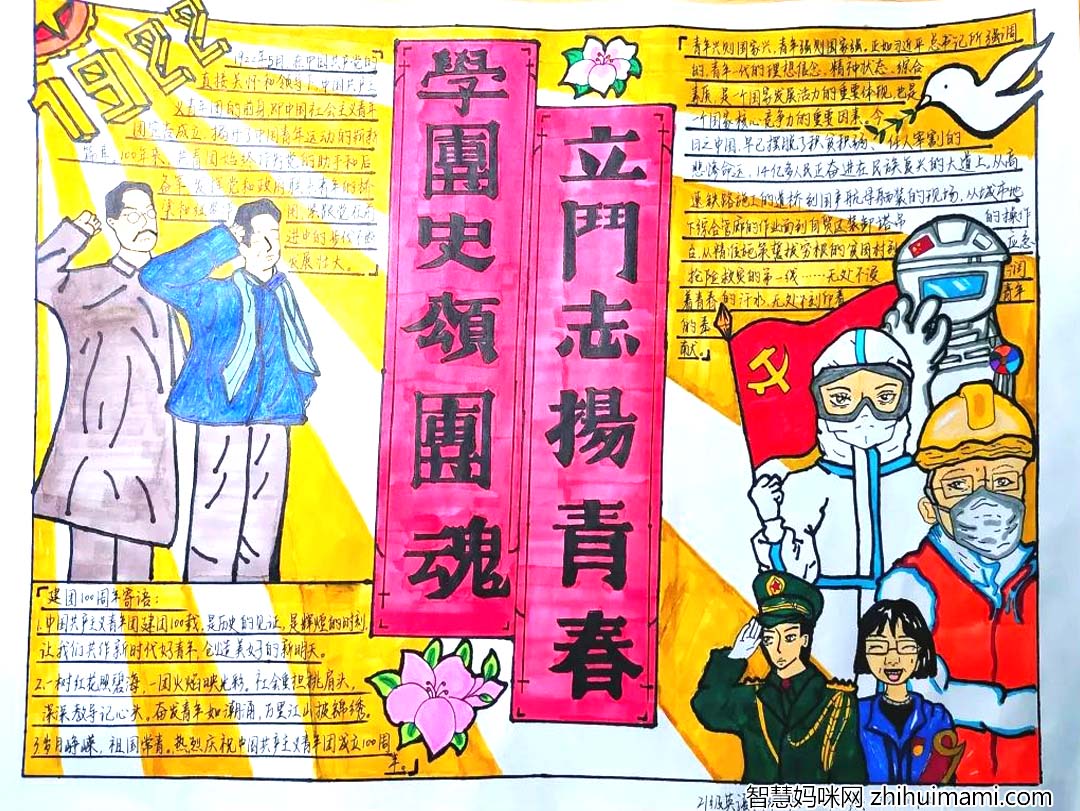 1922
1922年5月,在中国共产党的
直接关怀和领导下,中国共产主
义青年团的前身即中国社会主义青年
团宣告成立,揭开了中国青年运动的新
100年来,共青团始终作为党的助手和后
备军,发挥党和政府联
进中的步伐
发展壮大。」
學團史頌團魂
立鬥志揚青春
「青年兴则国家兴,青年强则国家强。正如习近平总书记所强调
的,青年一代的理想信念、精神状态、综合
素质,是一个国家发展活力的重要体现,也是
一个国家核心竞争力的重要因素。今
日之中国,早已摆脱了积贫积弱、任人宰割的
悲惨命运,14亿多人民正奋进在民族复兴的大道上。从高
速铁路施工的道桥到国产航母舾装的现场,从城市地
下综合管廊的作业面到自贸区装卸塔吊的操作
台,从精准施策誓拔穷根的贫困村到应急
抢险救灾的第一线……无处不浸润
着青春的汗水,无处不刻印着青年
的奉
献。」
「建团100周年寄语:
1.中国共产主义青年团建团100载,是历史的见证,是辉煌的时刻,
让我们共作新时代好青年,创造美好的新明天。
2.一树红花照碧海,一团火焰映光彩。社会重担挑肩头,
深深教导记心头。奋发青年如潮涌,万里江山披锦绣。
3.岁月峥嵘,祖国常青。热烈庆祝中国共产主义青年团成立100周
年。」
21级英语
智慧妈咪网 zhihuimami.com